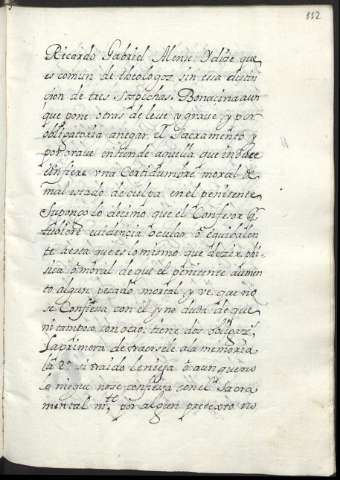 112
Ricardo Gabriel Mense y dize que
es comun de theologos sin esta
cion de tres sospechas. Bonacina aun
que pone otras de leve y grave, y por
obligatoria a negar el Sacramento y
por grave entiende aquella que induce
o infiere una certidumbre moral de
mal estado de culpa en el penitente
Supongo lo decimo que el Confesor q
tubiere evidencia ocular o equibalen
te a esta que es lo mismo que dezir phi
sica o moral de que el penitente
to algun pecado mortal y ve que no
se Confiesa con el y no duda de que
ni tampoco con otro, tiene dos obligazs
La primera de traersele a la memoria
la 2ª si traido le niega o aunque no
lo niegue no se confiesa con el Sacra
mental mte por algun pretexto no